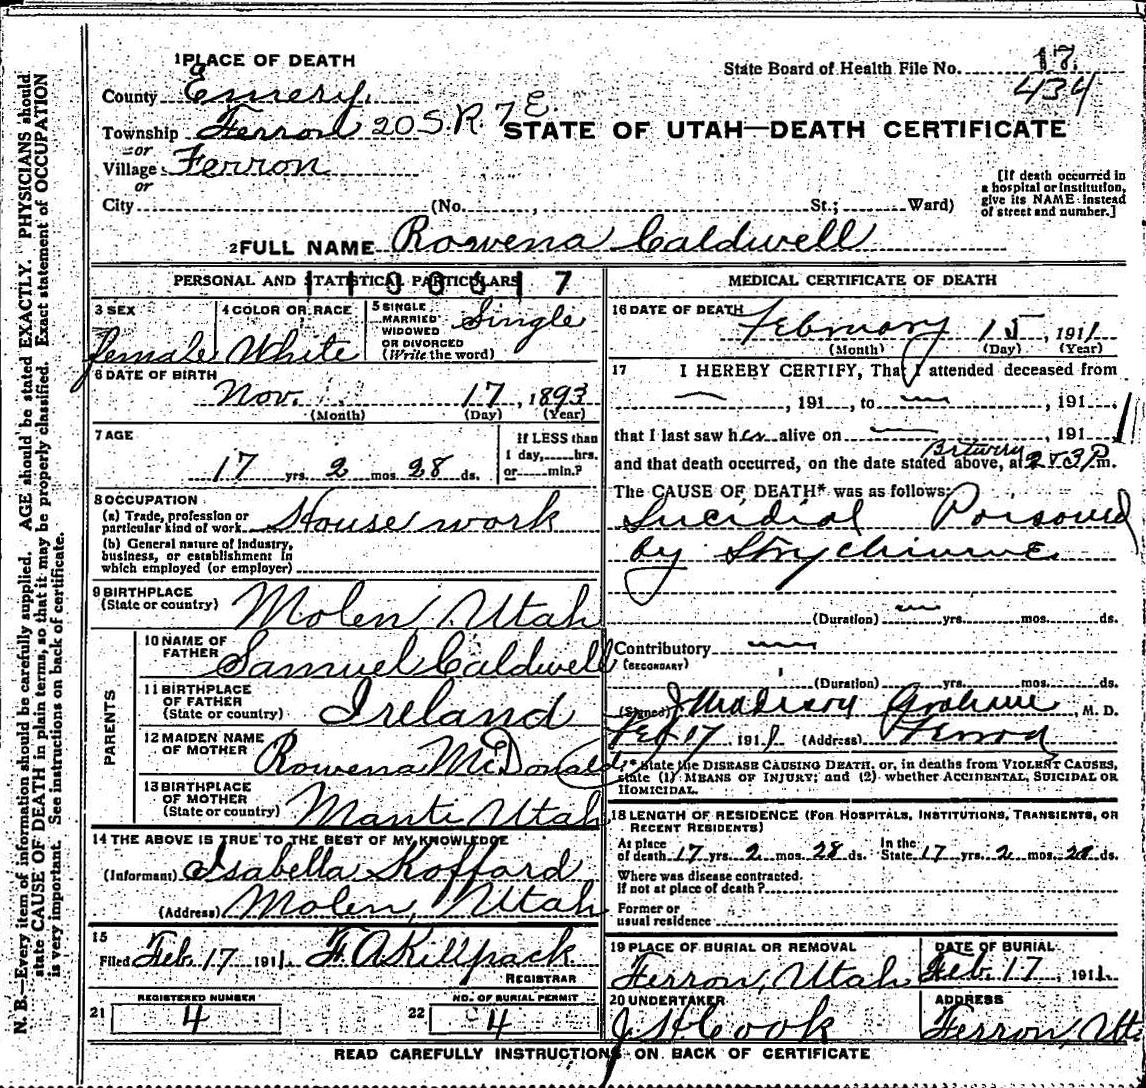 1 PLACE OF DEATH
County Emery.
Township Ferron 20 S. R. 7 E.
or
Village Ferron
or
City (No. , St.; Ward)
State Board of Health File No. 17.
434
STATE OF UTAH—DEATH CERTIFICATE
[If death occurred in
a hospital or institution,
give its NAME instead
of street and number.]
2 FULL NAME Rowena Caldwell
PERSONAL AND STATISTICAL PARTICULARS
3 SEX
female
4 COLOR OR RACE
White
5 SINGLE
MARRIED
WIDOWED
OR DIVORCED
(Write the word)
Single
6 DATE OF BIRTH
Nov. 17, 1893
(Month) (Day) (Year)
7 AGE
17 yrs. 2 mos. 28 ds.
If LESS than
1 day, hrs.
or min.?
8 OCCUPATION
(a) Trade, profession or
particular kind of work House work
(b) General nature of industry,
business, or establishment in
which employed (or employer)
9 BIRTHPLACE
(State or country) Molen, Utah
PARENTS
10 NAME OF
FATHER Samuel Caldwell
11 BIRTHPLACE
OF FATHER
(State or country) Ireland
12 MAIDEN NAME
OF MOTHER Rowena McDonald
13 BIRTHPLACE
OF MOTHER
(State or country) Manti Utah
14 THE ABOVE IS TRUE TO THE BEST OF MY KNOWLEDGE
(Informant) Isabella Koffard
(Address) Molen, Utah
15
Filed Feb. 17 1911. F. A. Killpack
REGISTRAR
REGISTERED NUMBER
21 4
NO. OF BURIAL PERMIT
22 4
MEDICAL CERTIFICATE OF DEATH
16 DATE OF DEATH February 15, 1911
(Month) (Day) (Year)
17 I HEREBY CERTIFY, That I attended deceased from
, 191 , to , 191
that I last saw her alive on , 191
Between
and that death occurred, on the date stated above, at 2 & 3 P. m.
The CAUSE OF DEATH* was as follows:
Sucidial Poisoned
by Strychinine
(Duration) yrs. mos. ds.
Contributory
(SECONDARY)
(Duration) yrs. mos. ds.
(Signed) J Madison Graham, M. D.
Feb 17 1911 (Address) Ferron
* State the DISEASE CAUSING DEATH, or, in deaths from VIOLENT CAUSES,
state (1) MEANS OF INJURY; and (2) whether ACCIDENTAL, SUICIDAL OR
HOMICIDAL.
18 LENGTH OF RESIDENCE (FOR HOSPITALS, INSTITUTIONS, TRANSIENTS, OR
RECENT RESIDENTS)
At place
of death 17 yrs. 2 mos. 28 ds. In the
State 17 yrs. 2 mos. 28 ds.
Where was disease contracted.
If not at place of death?
Former or
usual residence
19 PLACE OF BURIAL OR REMOVAL
Ferron, Utah
DATE OF BURIAL
Feb. 17, 1911.
20 UNDERTAKER
J. H. Cook
ADDRESS
Ferron, Ut.
READ CAREFULLY INSTRUCTIONS ON BACK OF CERTIFICATE
N. B.—Every item of information should be carefully supplied. AGE should be stated EXACTLY. PHYSICIANS should
state CAUSE OF DEATH in plain terms, so that it may be properly classified. Exact statement of OCCUPATION
is very important. See instructions on back of certificate.